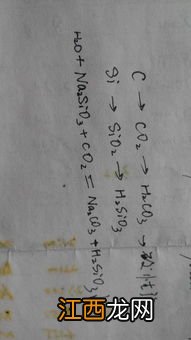 C → CO₂ → H₂CO₃ → 酸性
Si → SiO₂ → H₂SiO₃
H₂O + Na₂SiO₃ + CO₂ = Na₂CO₃ + H₂SiO₃
江西龙网